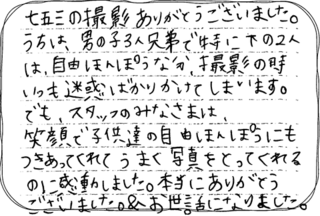 七五三の撮影ありがとうございました。
うちは、男の子3人兄弟で特に下の2人
は、自由ほんぽうなか、撮影の時
いつも迷惑ばかりかけてしまいます。
でも、スタッフのみなさまは、
笑顔で子供達の自由ほんぽうにも
つきあってくれて うまく写真をとってくれる
のに感動しました。本当にありがとう
ございました。&お世話になりました。